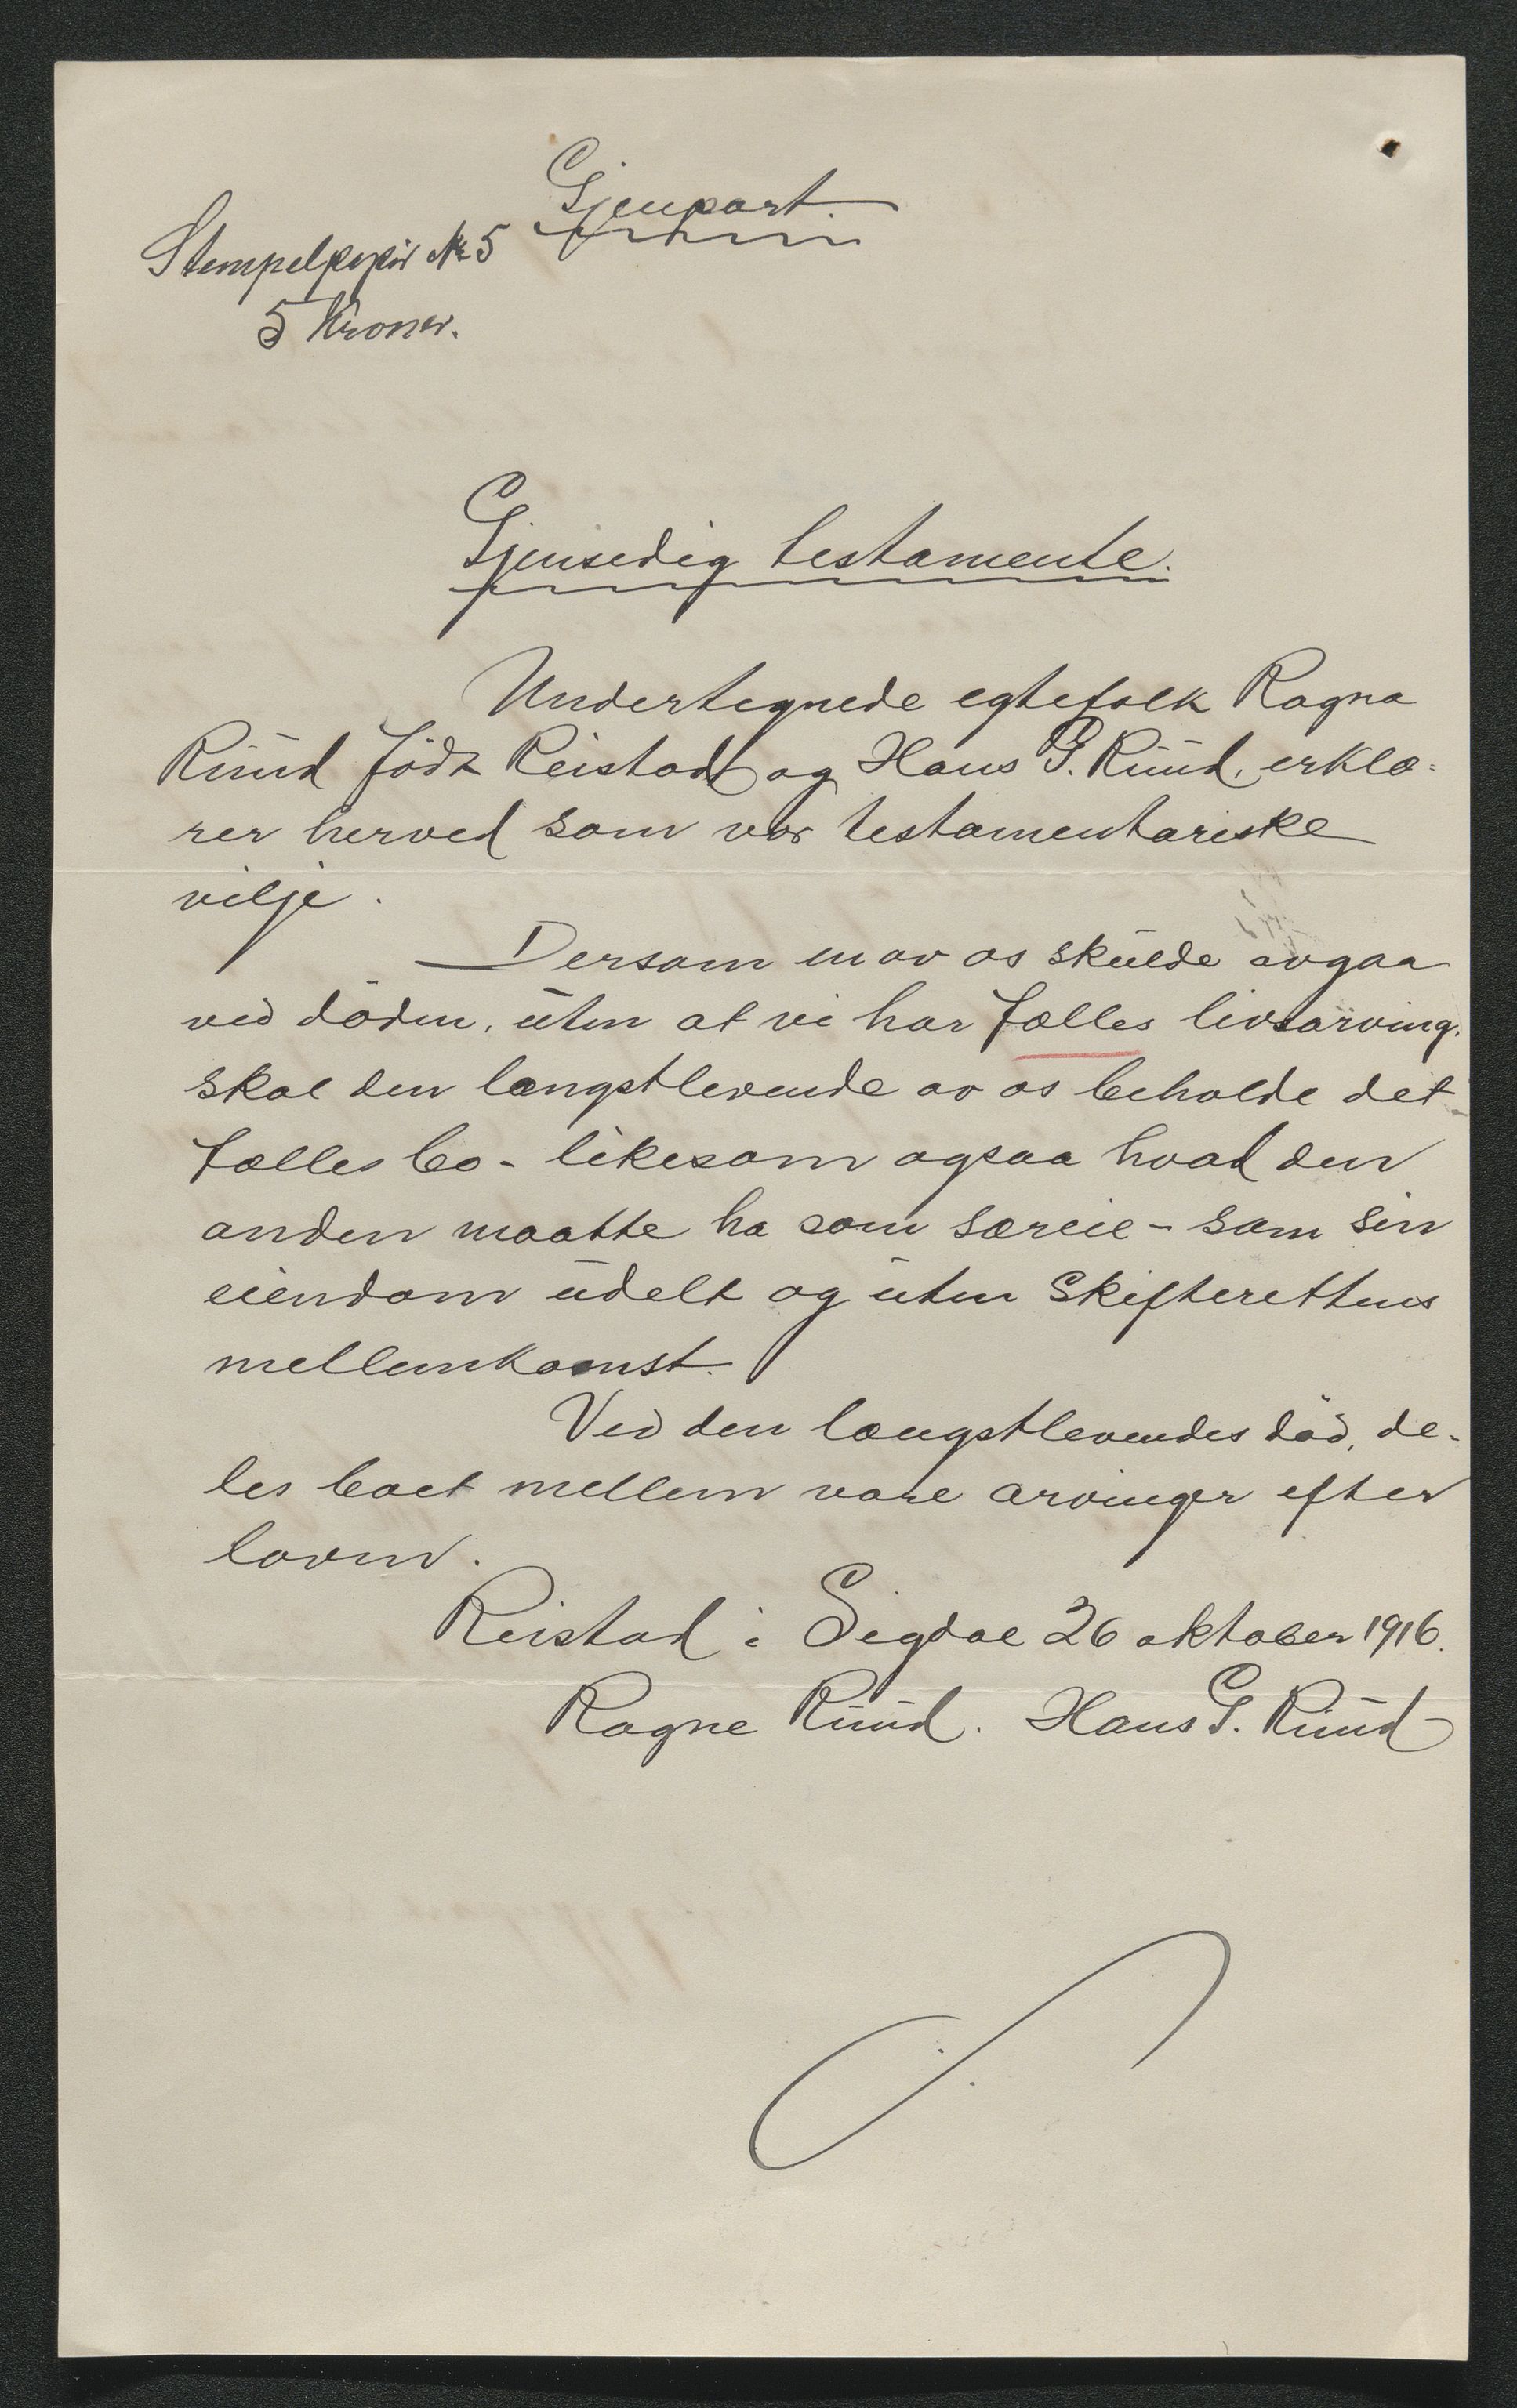 Gjenpart.
Stempelpapir No 5
5 Kroner.
Gjensidig testamente.
Undertegnede egtefolk Ragna
Ruud født Reistad og Hans G. Ruud, erklæ-
rer herved som vor testamentariske
vilje.
Dersom en av os skulde avgaa
ved døden, uten at vi har fælles livsarving,
skal den længstlevende av os beholde det
fælles bo - likesom ogsaa hvad den
anden maatte ha som særeie - som sin
eiendom udelt og uten Skifterettens
mellemkomst.
Ved den længstlevendes død, de-
les boet mellem vore arvinger efter
loven.
Reistad i Sigdal 26 oktober 1916.
Ragne Ruud. Hans G. Ruud